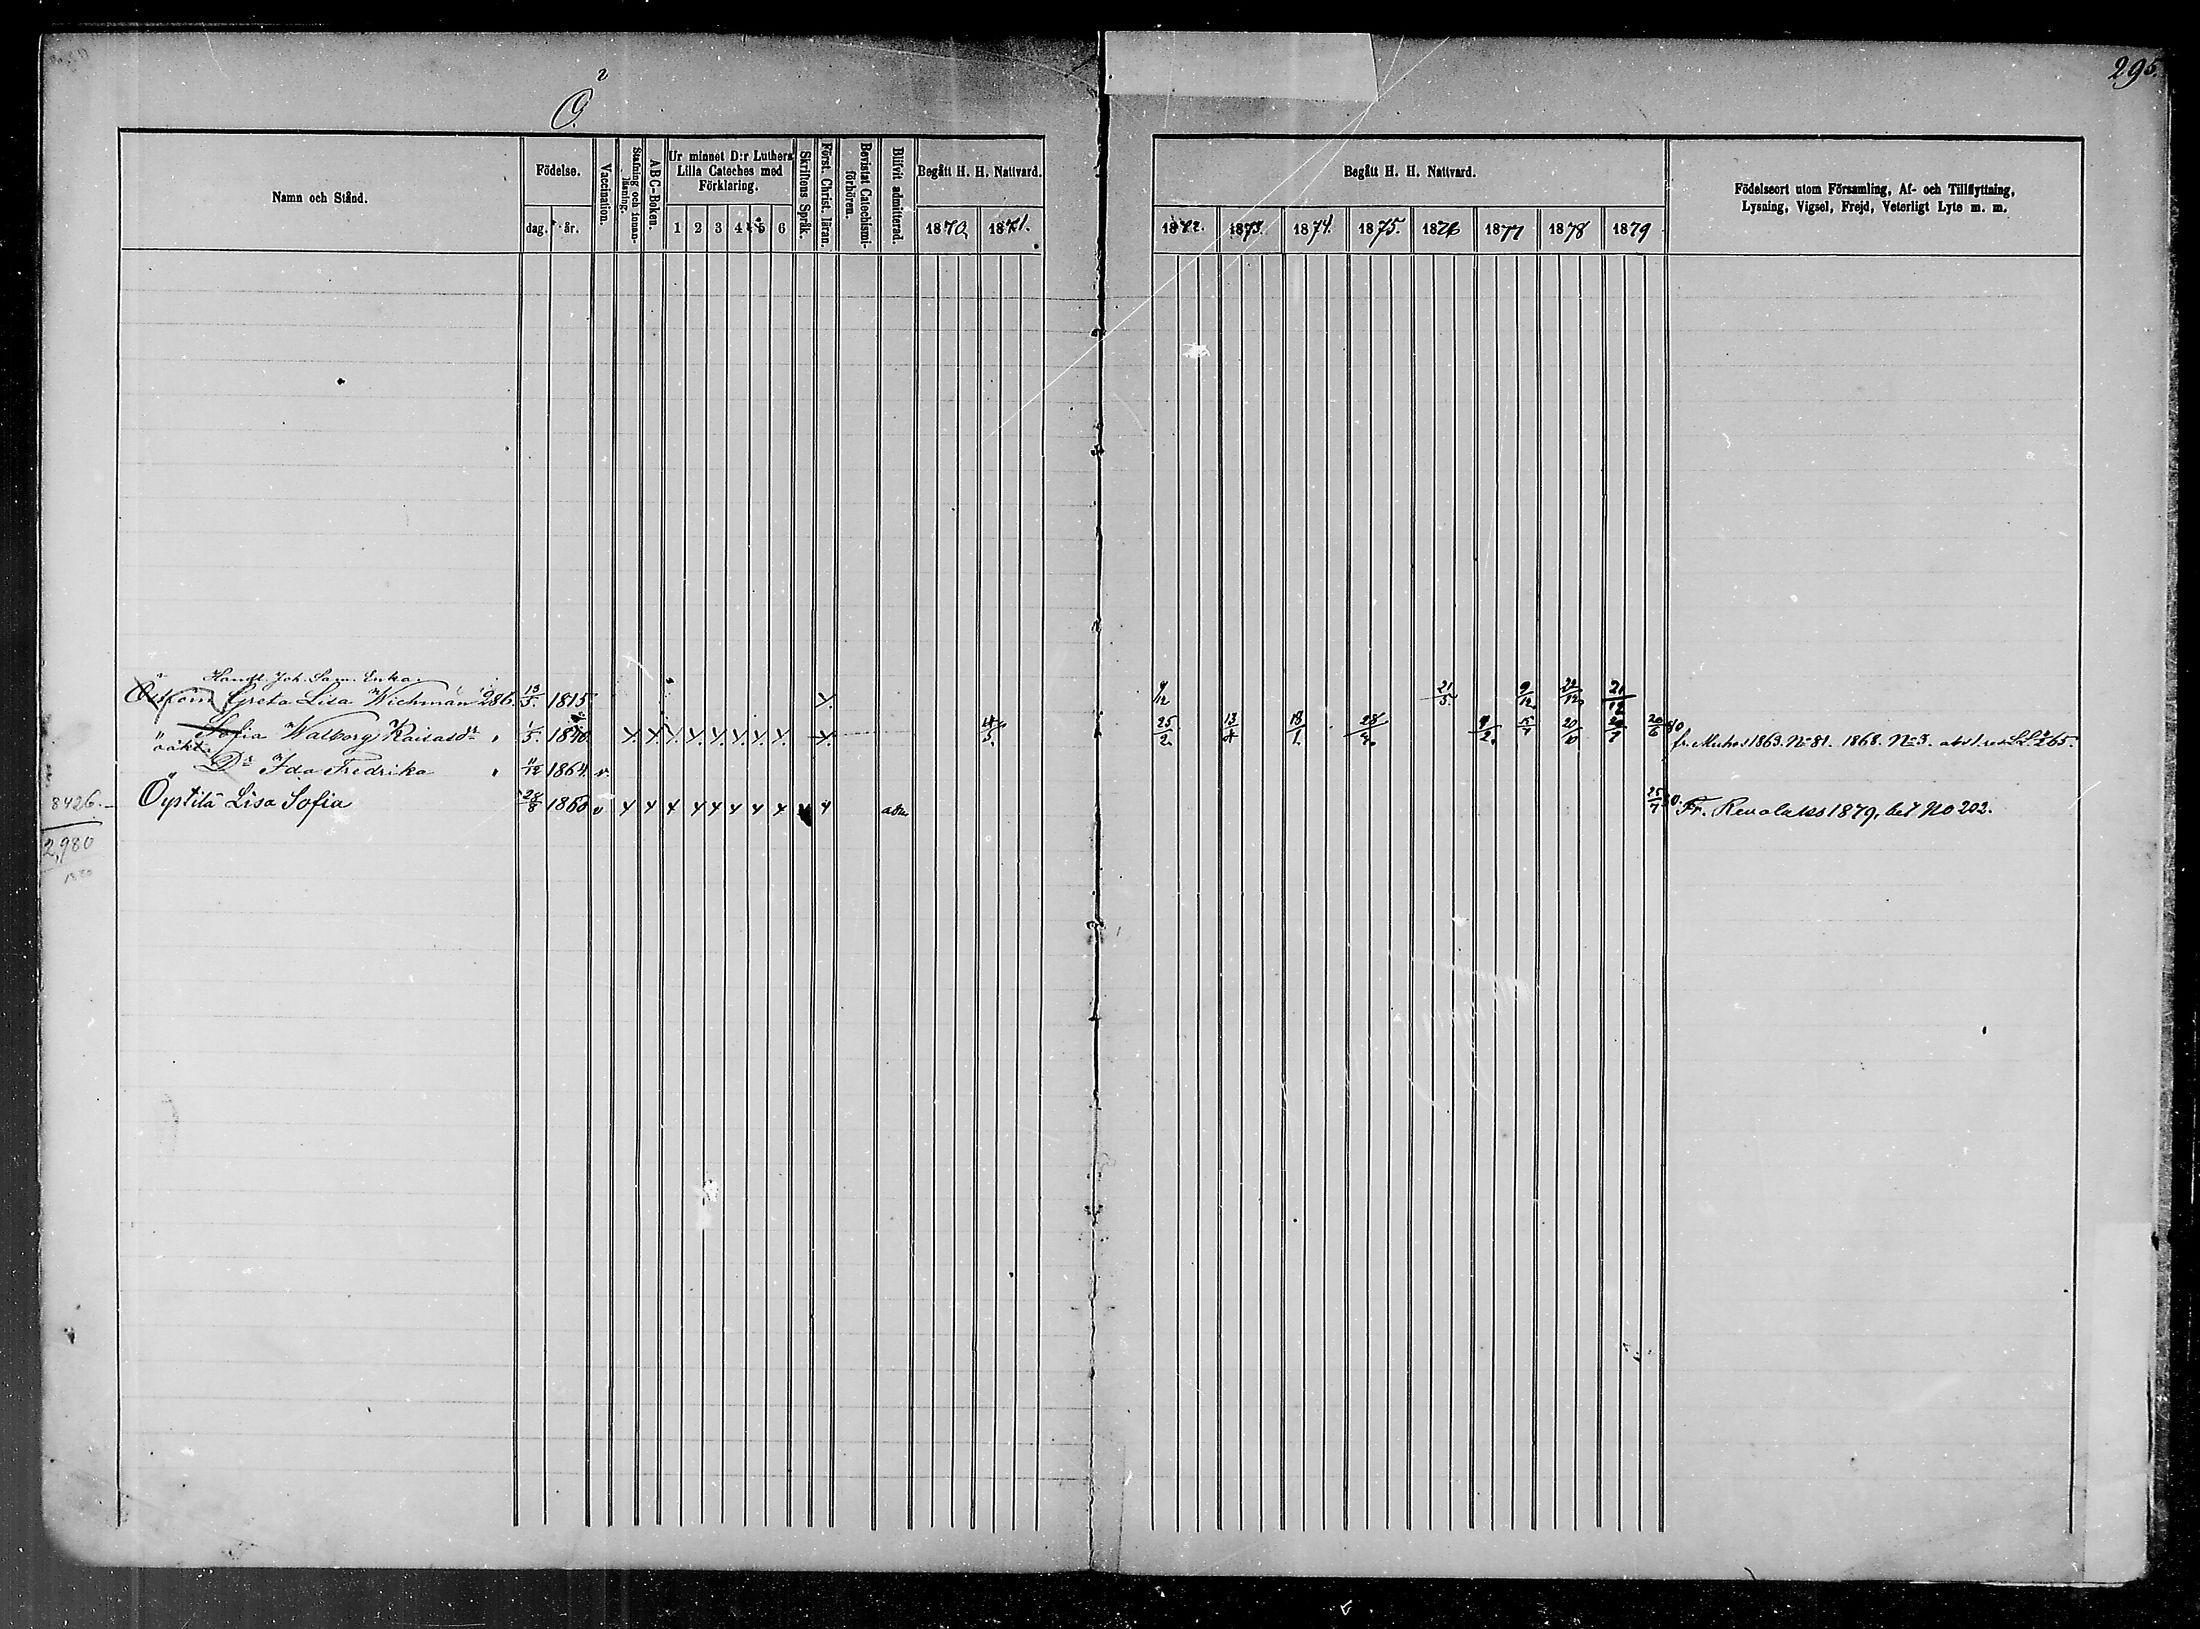 295.
Ö.
Namn och Stånd.
Födelse.
dag. år.
Vaccination.
Stafning och innan-läsning.
ABC-Boken.
Ur minnet D:r Luthers Lilla Cateches med Förklaring.
1 2 3 4 5 6
Skriftens Språk.
Först. Christ. läran.
Bevistat Catechismi-förhören.
Blifvit admitterad.
Begått H. H. Nattvard.
1870. 1871.
Begått H. H. Nattvard.
1872. 1873. 1874. 1875. 1876 1877 1878 1879
Födelseort utom Församling, Af- och Tillflyttning, Lysning, Vigsel, Frejd, Veterligt Lyte m. m.
Handl. Joh. Sam. Enka.
Greta Lisa Wichman 286. 13/5. 1815. y. 21/5. 9/12 22/12 21/12
Sofia Walborg Kaisasdr " 1/5. 1840. y. y. y. y. y. y. y. y. y. 25/2. 13/4 18/1. 9/2. 20/10 20/6 80 fr. Muhos 1863. No 81. 1868. No 3. 265.
oäkta Dr Ida Fredrika " 11/12 1864. v.
8426. Öystilä Lisa Sofia 28/8 1860 v y y y y y y y y y adm 25/7 80. Fr. Revolaks 1879, bet No 202.
2,980
1880